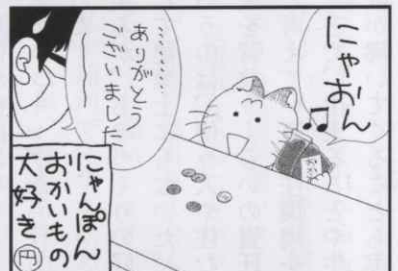 にゃおん♪
………
ありがとう
ございました
にゃんぽん
おかいもの
大好き
円